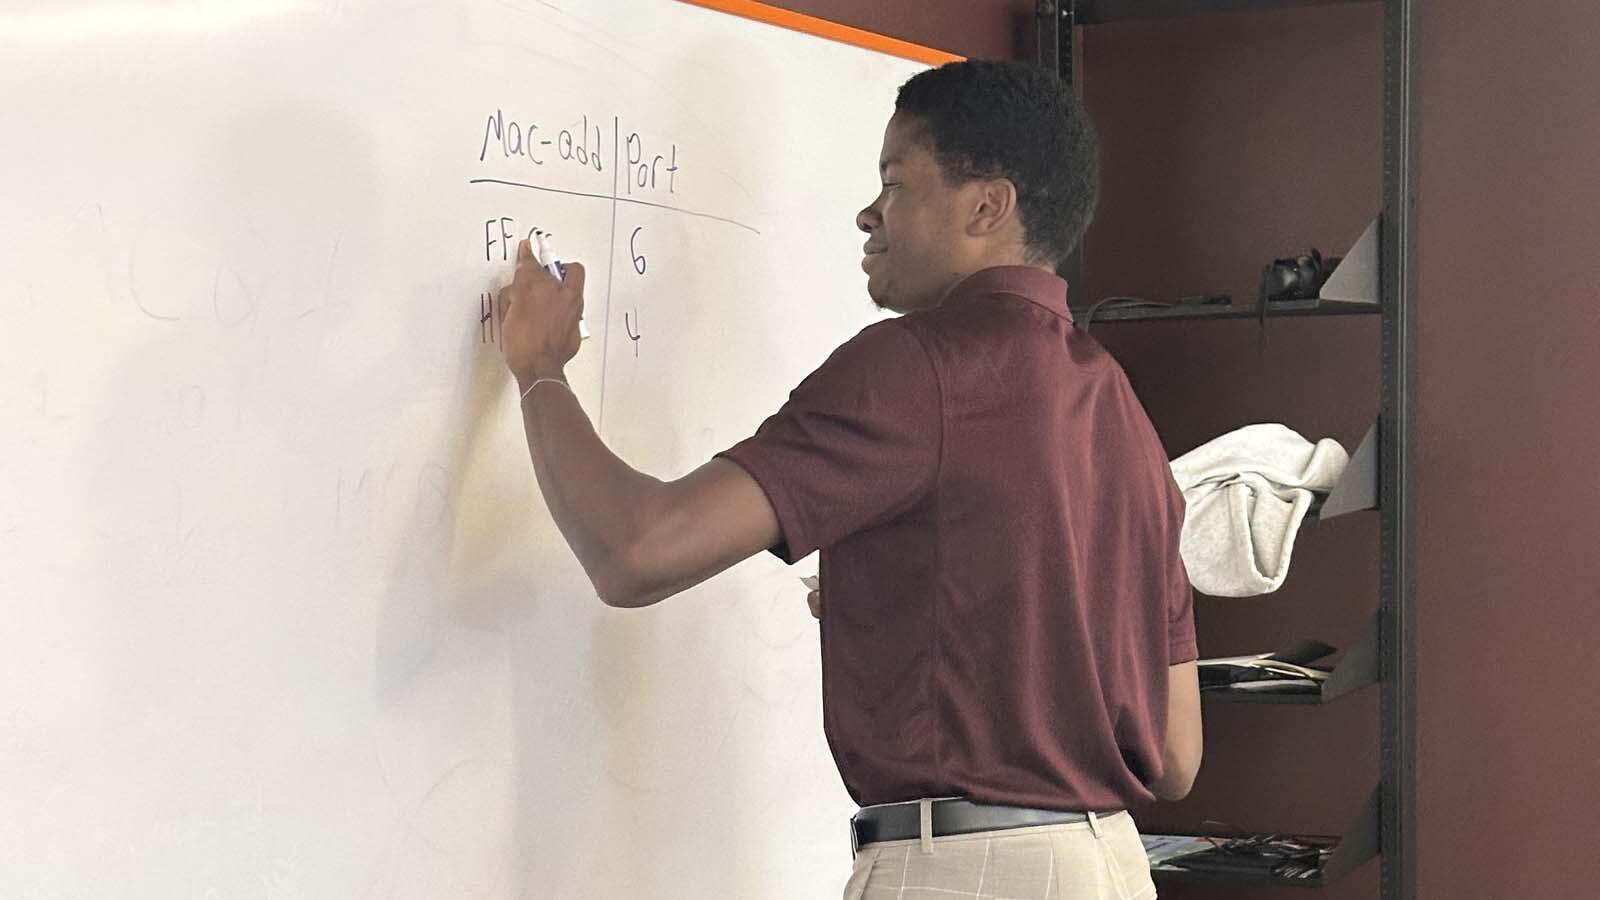 Mac-add Port
FF 6
4